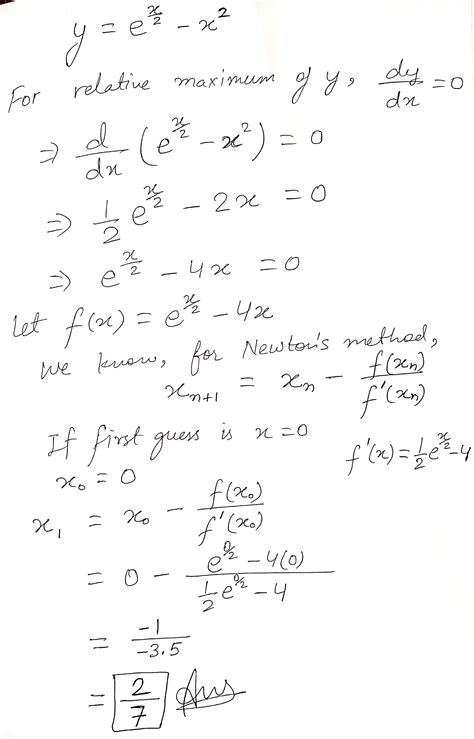 y = e^{x/2} - x^2
For relative maximum of y, dy/dx = 0
⇒ d/dx (e^{x/2} - x^2) = 0
⇒ 1/2 e^{x/2} - 2x = 0
⇒ e^{x/2} - 4x = 0
let f(x) = e^{x/2} - 4x
we know, for Newton's method,
x_{n+1} = x_n - f(x_n)/f'(x_n)
If first guess is x=0
f'(x) = 1/2 e^{x/2} - 4
x_0 = 0
x_1 = x_0 - f(x_0)/f'(x_0)
= 0 - (e^{0/2} - 4(0))/(1/2 e^{0/2} - 4)
= -1/-3.5
= 2/7 Ans